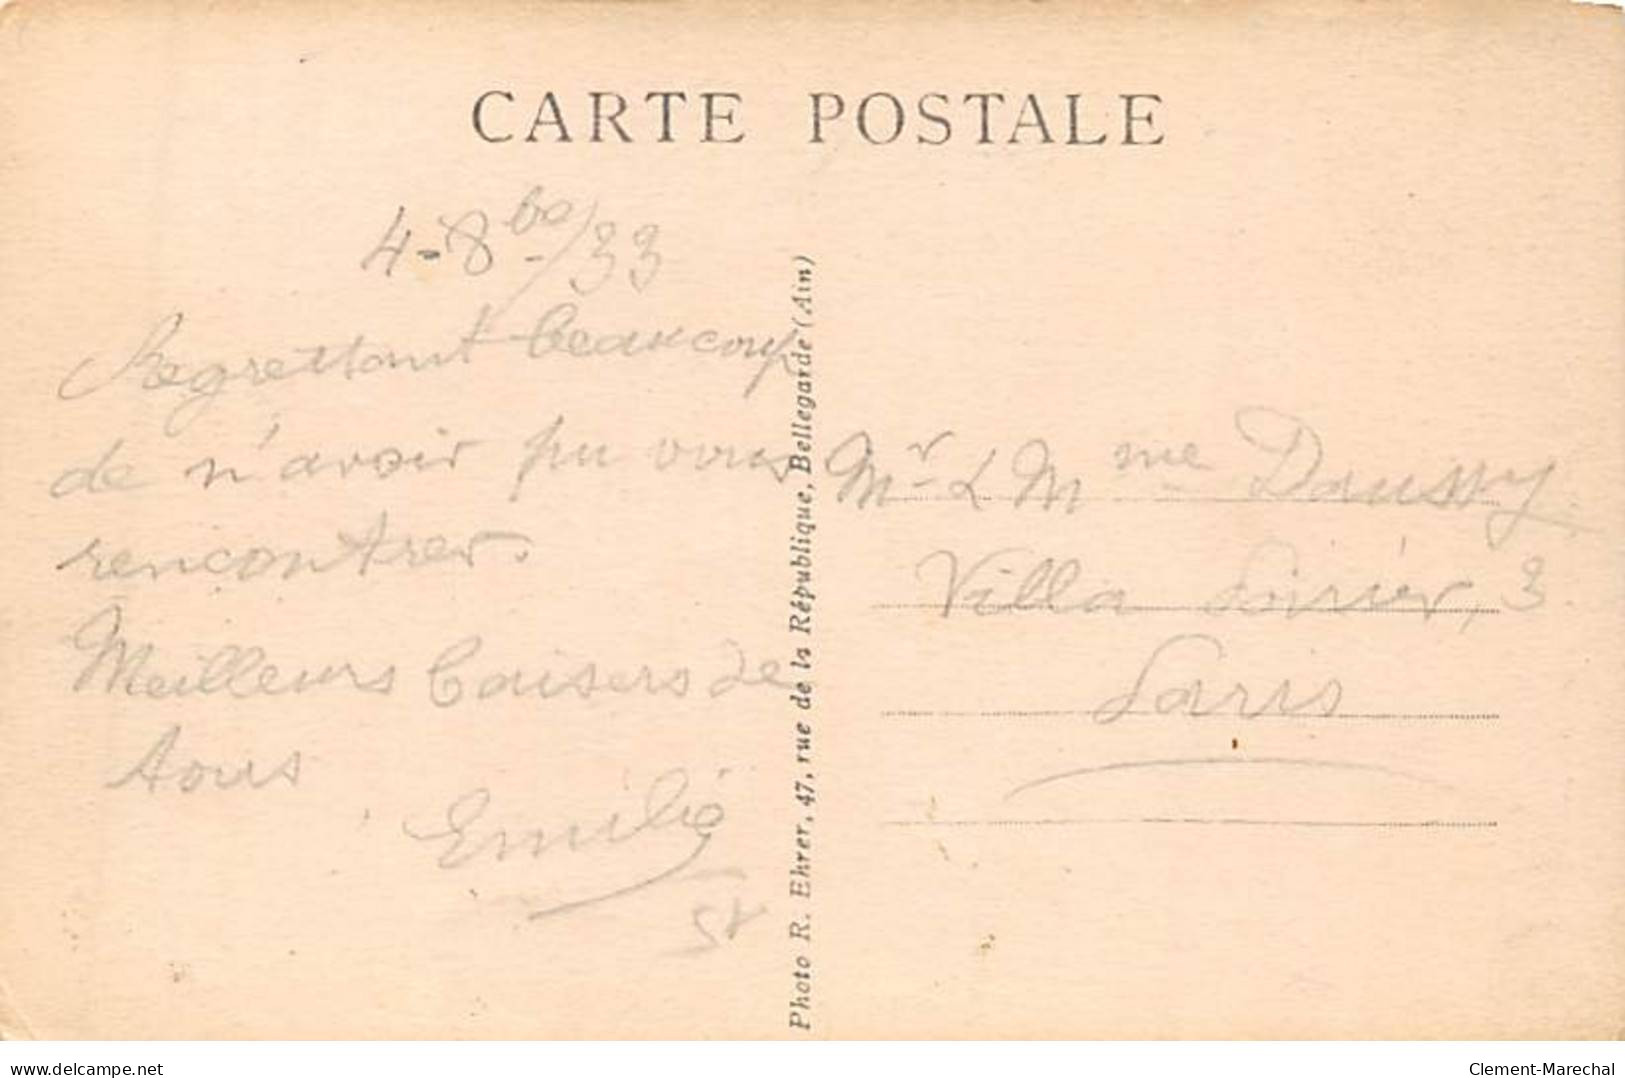 CARTE POSTALE
4-8bre/33
Regrettant beaucoup
de n'avoir pu vous
rencontrer.
Meilleurs baisers de
tous
Emilie
Photo R. Ehrer, 47, rue de la République, Bellegarde (Ain)
Mr & Mme Daussy
Villa Poirier, 3
Paris
delcampe.net
Clement-Marechal